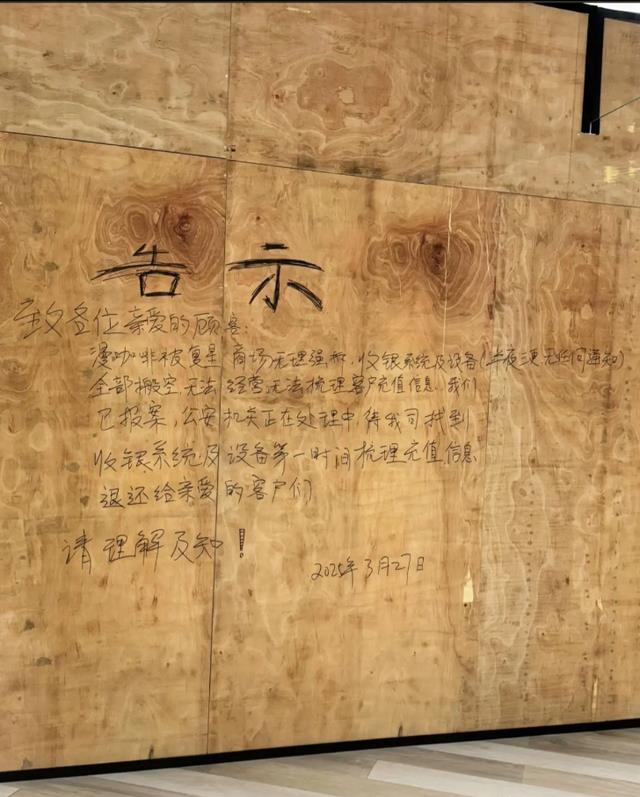 告示
致各位亲爱的顾客:
漫咖啡被复星商场无理强拆,收银系统及设备(半夜三更无任何通知)
全部搬空无法经营无法梳理客户充值信息.我们
已报案,公安机关正在处理中,待我司找到
收银系统及设备第一时间梳理充值信息
退还给亲爱的客户们
请理解及知!
2025年3月27日